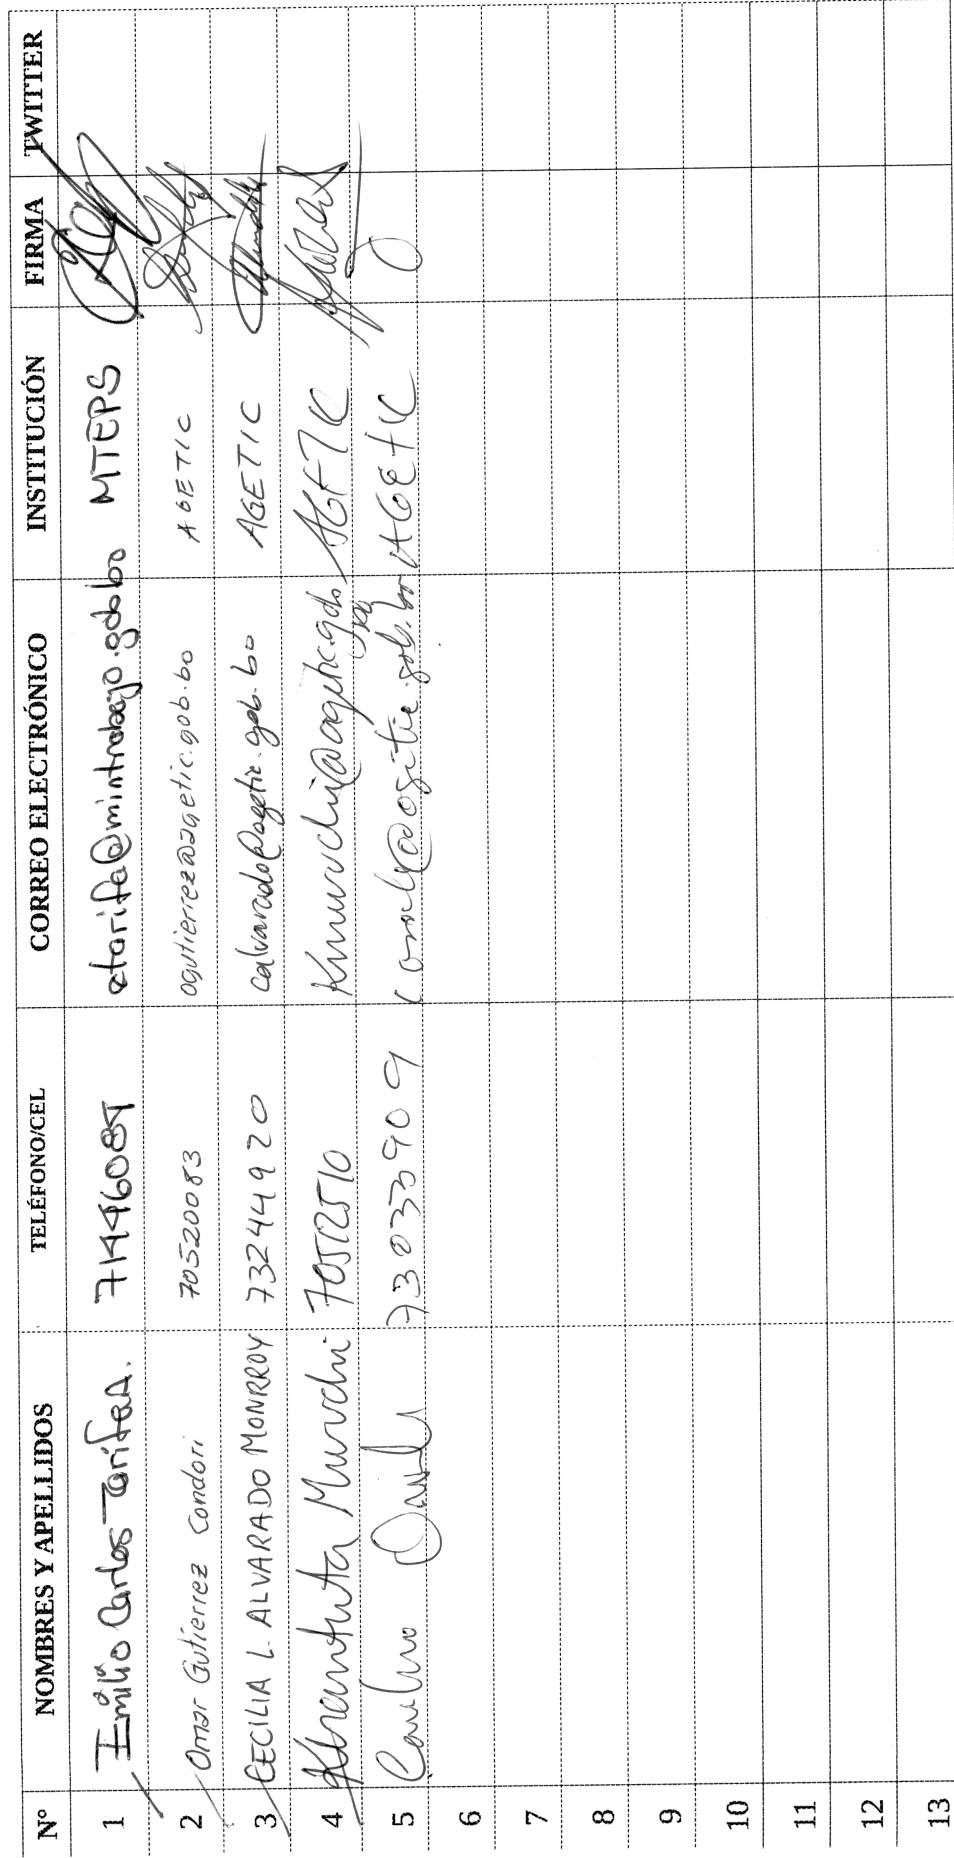 Nº NOMBRES Y APELLIDOS TELÉFONO/CEL CORREO ELECTRÓNICO INSTITUCIÓN FIRMA TWITTER
1 Emilio Carlos Tarifa A. 71446089 etarifa@mintrabajo.gob.bo MTEPS
2 Omar Gutierrez Condori 70520083 ogutierrez@agetic.gob.bo AGETIC
3 CECILIA L. ALVARADO MONRROY 73244920 calvarado@agetic.gob.bo AGETIC
4 Khantuta Muruchi 70512510 Kmuruchi@agetic.gob.bo AGETIC
5 73033909 AGETIC
6
7
8
9
10
11
12
13